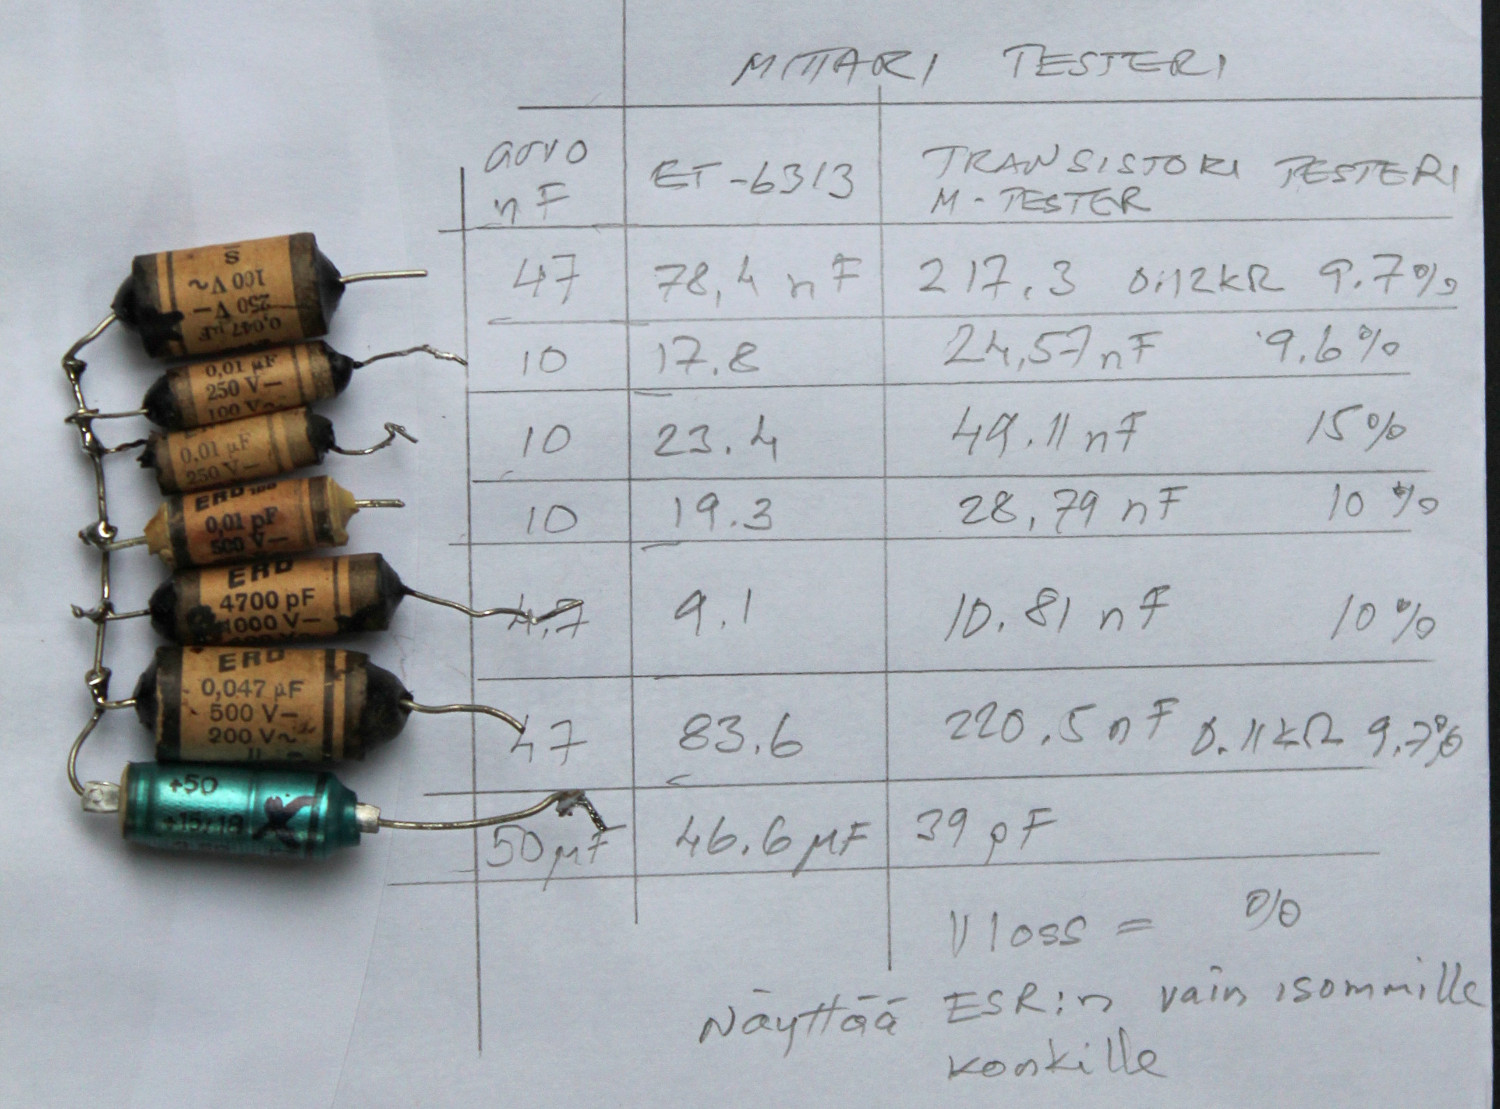 MITTARI TESTERI
arvo nF ET-6313 TRANSISTORI TESTERI
M-TESTER
47 78,4 nF 217.3 0.12kΩ 9.7%
10 17.8 24,57 nF 9.6%
10 23.4 49.11 nF 15%
10 19.3 28,79 nF 10%
4.7 9.1 10.81 nF 10%
47 83.6 220.5 nF 0.11kΩ 9.7%
50 µF 46.6 µF 39 pF
Vloss = %
Näyttää ESR:n vain isommille
konkille
S
100 V~
250 V–
0,047 µF
0,01 µF
250 V–
100 V~
0,01 µF
250 V–
ERO
0,01 µF
500 V–
ERO
4700 pF
1000 V–
ERO
0,047 µF
500 V–
200 V~
+50